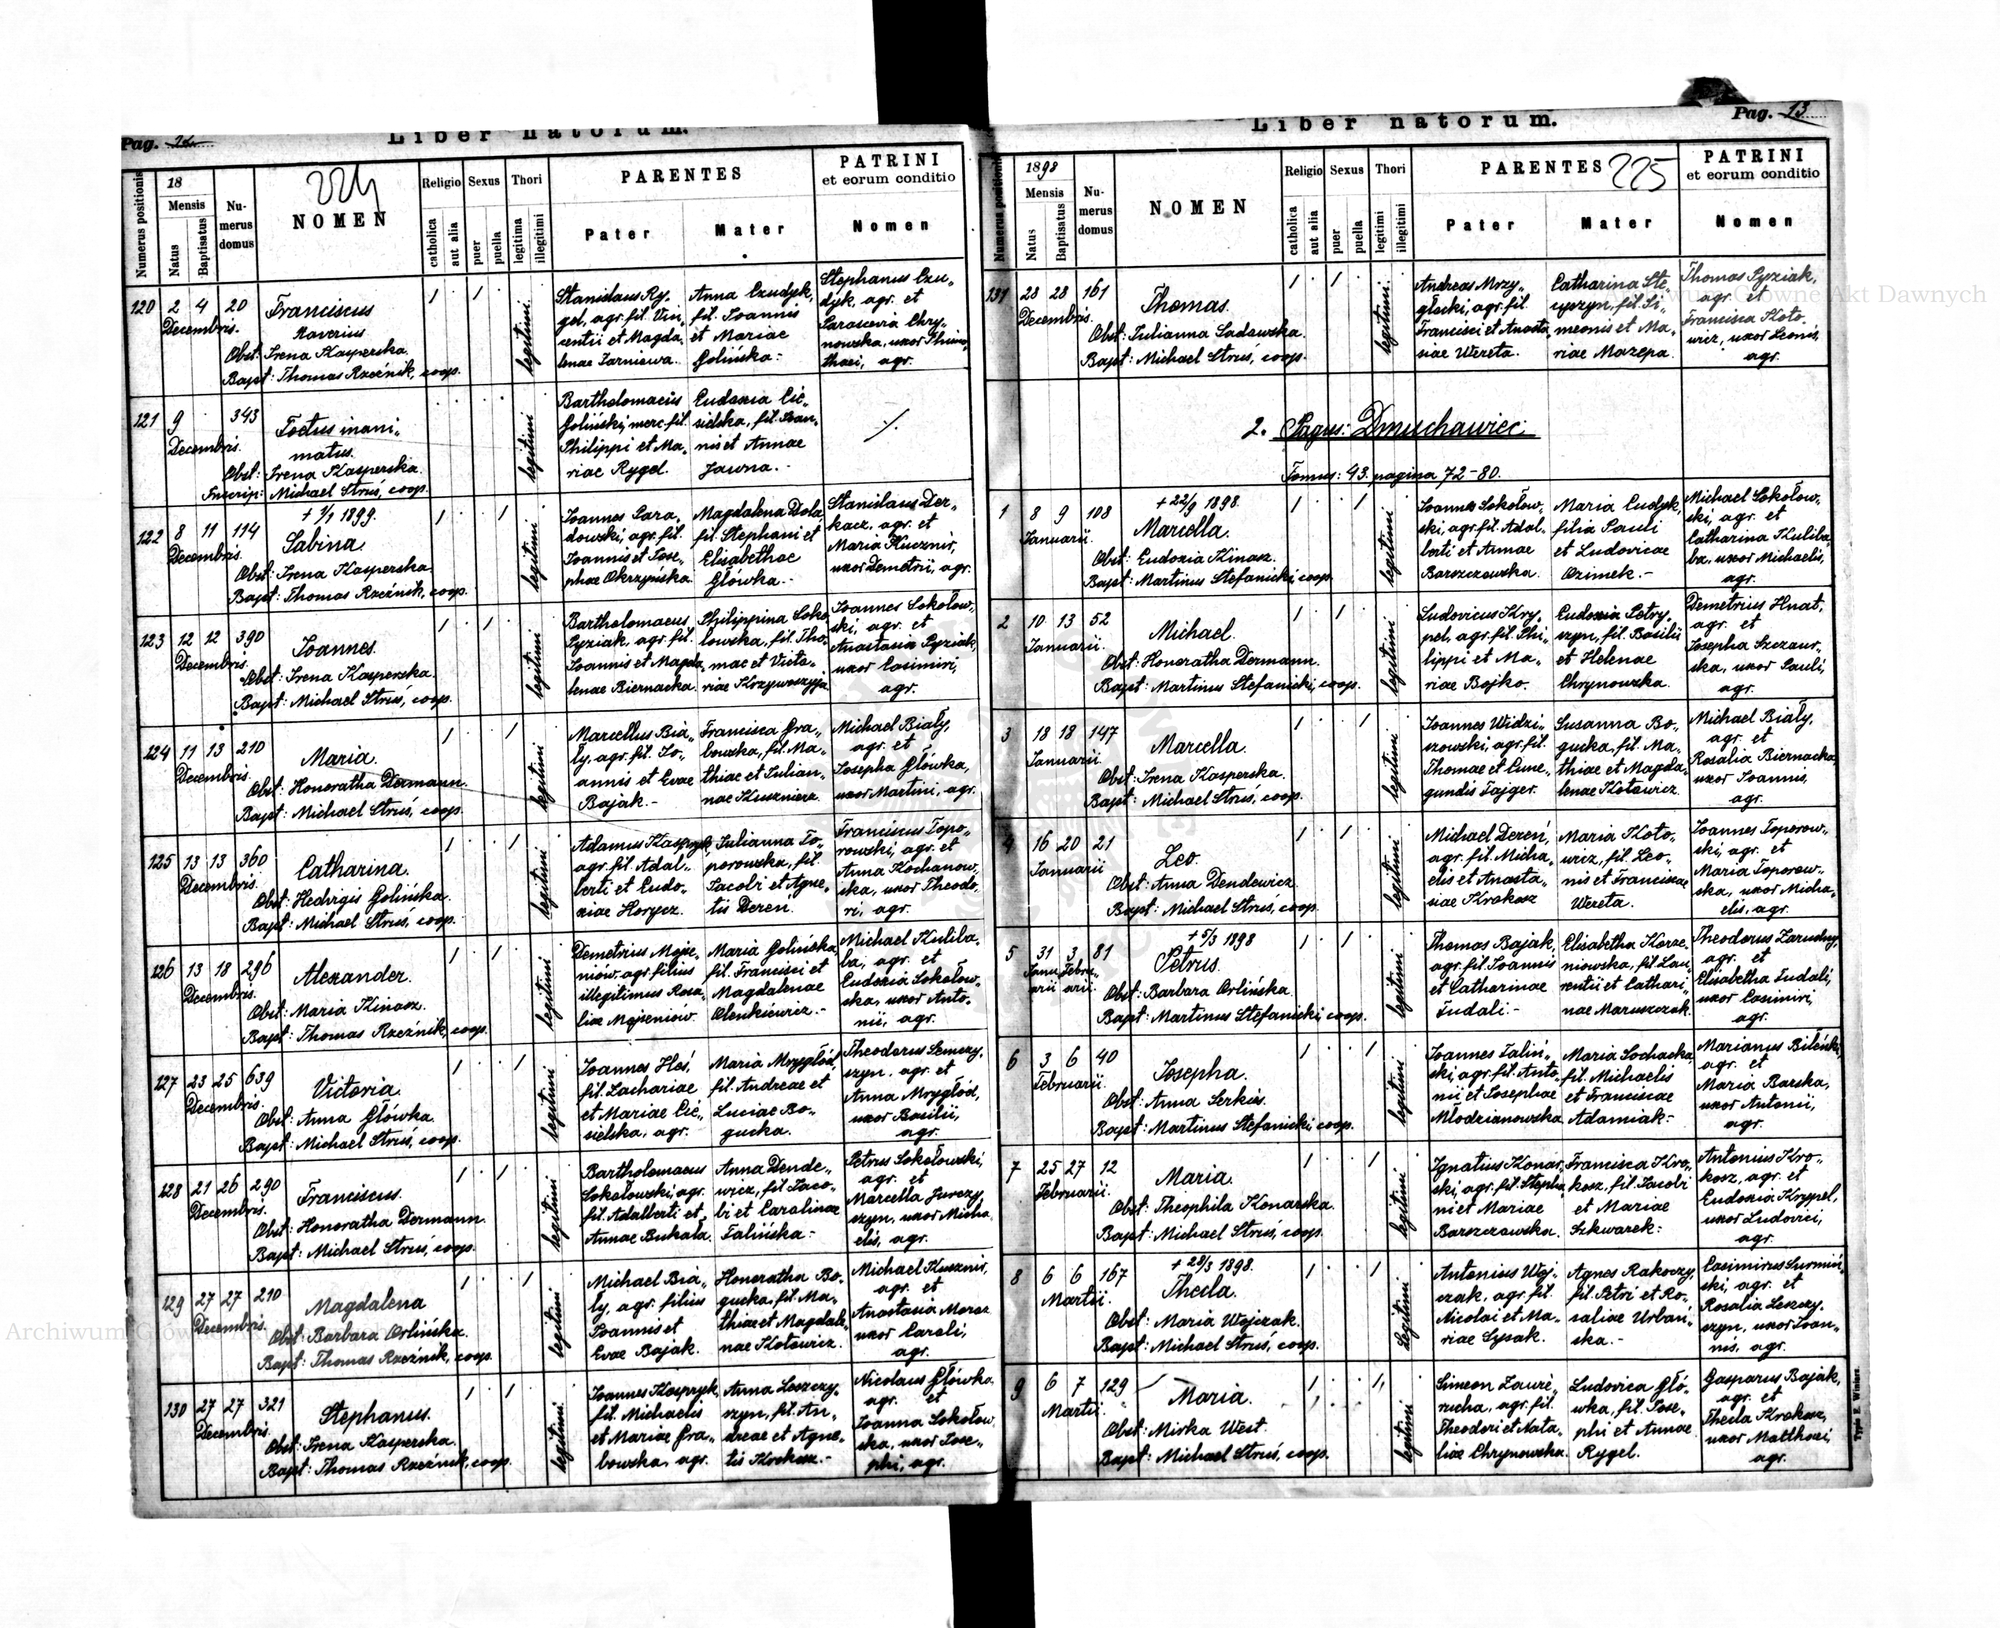 Pag. 12
Liber natorum.
Numerus positionis
18
Mensis
Natus
Baptisatus
Nu-
merus
domus
224
NOMEN
Religio
catholica
aut alia
Sexus
puer
puella
Thori
legitima
illegitimi
PARENTES
Pater
Mater
PATRINI
et eorum conditio
Nomen
120 2 4 20
Decembris.
Franciscus
Xaverius
Obst: Irena Kasperska
Bapt: Thomas Rzeźnik, coop.
legitimi
Stanislaus Ry-
gel, agr. fil. Vin-
centii et Magda-
lenae Jarniewa.
Anna Czudyk,
fil. Joannis
et Mariae
Golińska.-
Stephanus Czu-
dyk, agr. et
Parascevia Chry-
nowska, uxor Thimo-
thaei, agr.
121 9 343
Decembris.
Foetus inani-
matus.
Obst: Irena Kasperska.
Inscrip: Michael Struś, coop.
legitimi
Bartholomaeus
Goliński, merc. fil.
Philippi et Ma-
riae Rygel.
Eudoxia Cie-
sielska, fil. Joan-
nis et Annae
Jawna.-
122 8 11 114
Decembris.
+ 1/1 1899.
Sabina.
Obst: Irena Kasperska.
Bapt: Thomas Rzeźnik, coop.
legitimi
Joannes Para-
dowski, agr. fil.
Joannis et Jose-
phae Okrzyńska.
Magdalena Dola
fil. Stephani et
Elisabethae
Główka.-
Stanislaus Der-
kacz, agr. et
Maria Kucznir,
uxor Demetrii, agr.
123 12 12 390
Decembris.
Joannes.
Obst: Irena Kasperska.
Bapt: Michael Struś, coop.
legitimi
Bartholomaeus
Pyziak, agr. fil.
Joannis et Magda-
lenae Biernacka.
Philippina Soko-
łowska, fil. Tho-
mae et Victo-
riae Krzywoszyja
Joannes Sokołow-
ski, agr. et
Anastasia Pyziak,
uxor Casimiri,
agr.
124 11 13 210
Decembris.
Maria.
Obst: Honoratha Dermann.
Bapt: Michael Struś, coop.
legitimi
Marcellus Bia-
ły, agr. fil. Jo-
annis et Evae
Bajak.-
Francisca Gra-
bowska, fil. Ma-
thiae et Julian-
nae Kusznierz.
Michael Biały,
agr. et
Josepha Główka,
uxor Martini, agr.
125 13 13 360
Decembris.
Catharina.
Obst: Hedvigis Golińska.
Bapt: Michael Struś, coop.
legitimi
Adamus Kasprzyk,
agr. fil. Adal-
berti et Eudo-
xiae Horycz.
Julianna To-
porowska, fil.
Jacobi et Agne-
tis Deren.
Franciscus Topo-
rowski, agr. et
Anna Kochanow-
ska, uxor Theodo-
ri, agr.
126 13 18 296
Decembris.
Alexander.
Obst: Maria Kinasz.
Bapt: Thomas Rzeźnik, coop.
legitimi
Demetrius Moje-
niów, agr. filius
illegitimus Rosa-
liae Mojeniow.
Maria Golińska
fil. Francisci et
Magdalenae
Olenkiewicz.-
Michael Kuliba-
ba, agr. et
Eudoxia Sokołow-
ska, uxor Anto-
nii, agr.
127 23 25 639
Decembris.
Victoria.
Obst: Anna Główka.
Bapt: Michael Struś, coop.
legitimi
Joannes Heś,
fil. Zachariae
et Mariae Cie-
sielska, agr.
Maria Mrygłód,
fil. Andreae et
Luciae Bo-
gucka.
Theodorus Semczy-
szyn, agr. et
Anna Mrygłód,
uxor Basilii,
agr.
128 21 26 290
Decembris.
Franciscus.
Obst: Honoratha Dermann.
Bapt: Michael Struś, coop.
legitimi
Bartholomaeus
Sokołowski, agr.
fil. Adalberti et
Annae Bukała.
Anna Dende-
wicz, fil. Jaco-
bi et Carolinae
Falińska.-
Petrus Sokołowski,
agr. et
Marcella Jurczy-
szyn, uxor Micha-
elis, agr.
129 27 27 210
Decembris.
Magdalena
Obst: Barbara Orlińska.
Bapt: Thomas Rzeźnik, coop.
legitimi
Michael Bia-
ły, agr. filius
Joannis et
Evae Bajak.
Honoratha Bo-
gucka, fil. Ma-
thiae et Magdale-
nae Kotowicz.
Michael Kusznir,
agr. et
Anastasia Moroz
uxor Caroli,
agr.
130 27 27 321
Decembris.
Stephanus.
Obst: Irena Kasperska.
Bapt: Thomas Rzeźnik, coop.
legitimi
Joannes Kasprzyk,
fil. Michaelis
et Mariae Gra-
bowska, agr.
Anna Leszczy-
szyn, fil. An-
dreae et Agne-
tis Krokosz.-
Nicolaus Główka
agr. et
Joanna Sokołow-
ska, uxor Jose-
phi, agr.
Pag. 13
Liber natorum.
Numerus positionis
1898
Mensis
Natus
Baptisatus
Nu-
merus
domus
NOMEN
Religio
catholica
aut alia
Sexus
puer
puella
Thori
legitimi
illegitimi
PARENTES 225
Pater
Mater
PATRINI
et eorum conditio
Nomen
131 28 28 161
Decembris.
Thomas.
Obst: Julianna Sadowska.
Bapt: Michael Struś, coop.
legitimi.
Andreas Mrzy-
głocki, agr. fil.
Francisci et Anasta-
siae Wereta.
Catharina Ste-
cyszyn, fil. Si-
meonis et Ma-
riae Mazepa.
Thomas Pyziak,
agr. et
Francisca Koto-
wicz, uxor Leonis,
agr.
2. Pagus: Dmuchawiec.
Tomus: 43. pagina 72-80.
1 8 9 108
Januarii.
+ 22/9 1898.
Marcella.
Obst: Eudoxia Kinasz.
Bapt: Martinus Stefanicki, coop.
legitimi
Joannes Sokołow-
ski, agr. fil. Adal-
berti et Annae
Barszczowska.
Maria Cudyk,
filia Pauli
et Ludovicae
Ozimek.-
Michael Sokołow-
ski, agr. et
Catharina Kuliba-
ba, uxor Michaelis,
agr.
2 10 13 52
Januarii.
Michael.
Obst: Honoratha Dermann.
Bapt: Martinus Stefanicki, coop.
legitimi
Ludovicus Kry-
pel, agr. fil. Phi-
lippi et Ma-
riae Bojko.
Eudoxia Petry-
szyn, fil. Basilii
et Helenae
Chrynowska.
Demetrius Hnat,
agr. et
Josepha Szczaur-
ska, uxor Pauli,
agr.
3 18 18 147
Januarii.
Marcella.
Obst: Irena Kasperska.
Bapt: Michael Struś, coop.
legitimi
Joannes Widzi-
szowski, agr. fil.
Thomae et Cune-
gundis Fajger.
Susanna Bo-
gucka, fil. Ma-
thiae et Magda-
lenae Kotowicz.
Michael Biały,
agr. et
Rosalia Biernacka,
uxor Joannis,
agr.
4 16 20 21
Januarii
Leo.
Obst: Anna Dendewicz.
Bapt: Michael Struś, coop.
legitimi
Michael Dereń,
agr. fil. Micha-
elis et Anasta-
siae Krokosz
Maria Koto-
wicz, fil. Leo-
nis et Franciscae
Wereta.
Joannes Toporow-
ski, agr. et
Maria Toporow-
ska, uxor Micha-
elis, agr.
5 31 3 81
Janu- Febru-
arii arii.
+ 5/3 1898
Petrus.
Obst: Barbara Orlińska.
Bapt: Martinus Stefanicki, coop.
legitimi
Thomas Bajak,
agr. fil. Joannis
et Catharinae
Fudali.-
Elisabetha Korze-
niowska, fil. Lau-
rentii et Cathari-
nae Maruszczak.
Theodorus Zarudny,
agr. et
Elisabetha Fudali,
uxor Casimiri,
agr.
6 3 6 40
Februarii.
Josepha.
Obst: Anna Serkis.
Bapt: Martinus Stefanicki, coop.
legitimi
Joannes Faliń-
ski, agr. fil. Anto-
nii et Josephae
Młodzianowska
Maria Sochacka,
fil. Michaelis
et Franciscae
Adamiak.-
Marianus Bileński,
agr. et
Maria Barska,
uxor Antonii,
agr.
7 25 27 12
Februarii.
Maria.
Obst: Theophila Konarska.
Bapt: Michael Struś, coop.
legitimi
Ignatius Konar-
ski, agr. fil. Stepha-
ni et Mariae
Barszczowska.
Francisca Kro-
kosz, fil. Jacobi
et Mariae
Szkwarek.-
Antonius Kro-
kosz, agr. et
Eudoxia Krypel,
uxor Ludovici,
agr.
8 6 6 167
Martii.
+ 28/3 1898.
Thecla.
Obst: Maria Wojczak.
Bapt: Michael Struś, coop.
Legitimi
Antonius Woj-
czak, agr. fil.
Nicolai et Ma-
riae Łysak.
Agnes Rakoczy,
fil. Petri et Ro-
saliae Urbań-
ska.-
Casimirus Surmiń-
ski, agr. et
Rosalia Leszczy-
szyn, uxor Joan-
nis, agr.
9 6 7 129
Martii.
Maria.
Obst: Mirka West.
Bapt: Michael Struś, coop.
legitimi
Simeon Ławre-
rucha, agr. fil.
Theodori et Nata-
liae Chrynowska.
Ludovica Głó-
wka, fil. Jose-
phi et Annae
Rygel.
Gasparus Bajak,
agr. et
Thecla Krokosz,
uxor Matthaei,
agr.
Typis E. Winiarz.
Archiwum Główne Akt Dawnych